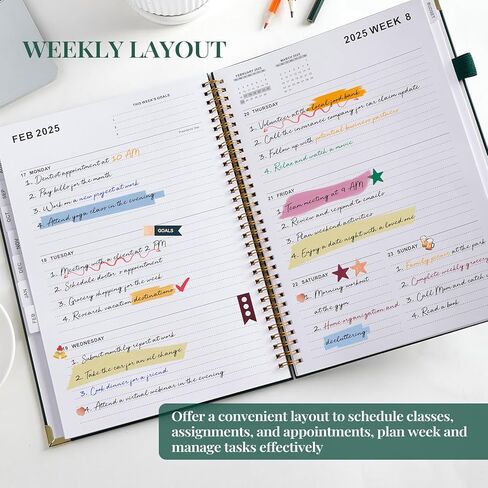 WEEKLY LAYOUT
THIS WEEK'S GOALS
FEB 2025
17 MONDAY
1. Dentist appointment at 10 AM
2. Pay bills for the month
3. Work on a new project at work
4. Attend yoga class in the evening
GOALS
18 TUESDAY
1. Meeting with a client at 2 PM
2. Schedule doctor's appointment
3. Grocery shopping for the week
4. Research vacation destinations
19 WEDNESDAY
1. Submit monthly report at work
2. Take the car for an oil change
3. Cook dinner for a friend
4. Attend a virtual webinar in the evening
2025 WEEK 8
FEBRUARY 2025
MARCH 2025
20 THURSDAY
1. Volunteer at the local food bank
2. Call the insurance company for car claim update
3. Follow up with potential business partners
4. Relax and watch a movie
21 FRIDAY
1. Team meeting at 9 AM
2. Review and respond to emails
3. Plan weekend activities
4. Enjoy a date night with a loved one
22 SATURDAY
1. Morning workout
at the gym
2. Home organization and
decluttering
23 SUNDAY
1. Family picnic at the park
2. Complete weekly grocery
3. Call Mom and catch
4. Read a book
BUDGET
OCT
NOV
DEC
JAN
FEB
Offer a convenient layout to schedule classes,
assignments, and appointments, plan week and
manage tasks effectively